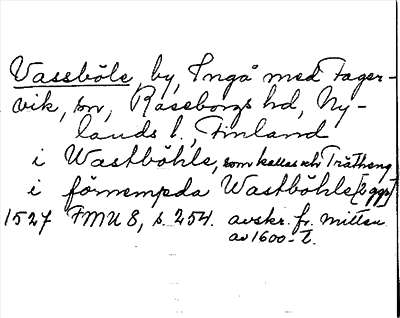 Vassböle, by, Ingå med Fager-
vik, sn, Raseborgs hd, Ny-
lands l., Finland
i Wastböhle, som kallas Träthang
i förnempda Wastböhle [2 ggr]
1527 FMU 8, s. 254. avskr. fr. mitten
av 1600-t.